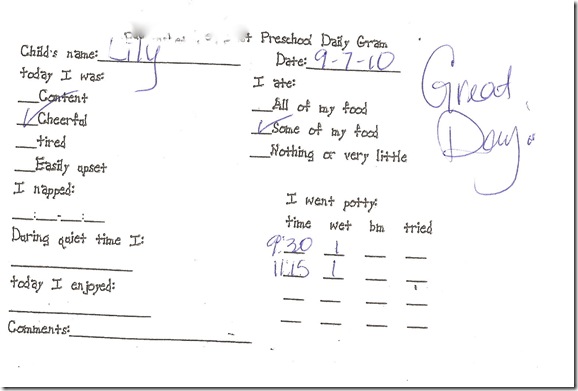 Preschool Daily Gram
Child's name: Lily
Date: 9-7-10
today I was:
Content
Cheerful
tired
Easily upset
I napped:
__:__-__:__
During quiet time I:
today I enjoyed:
Comments:
I ate:
All of my food
Some of my food
Nothing or very little
I went potty:
time wet bm tried
9:30 1
11:15 1
Great
Day.